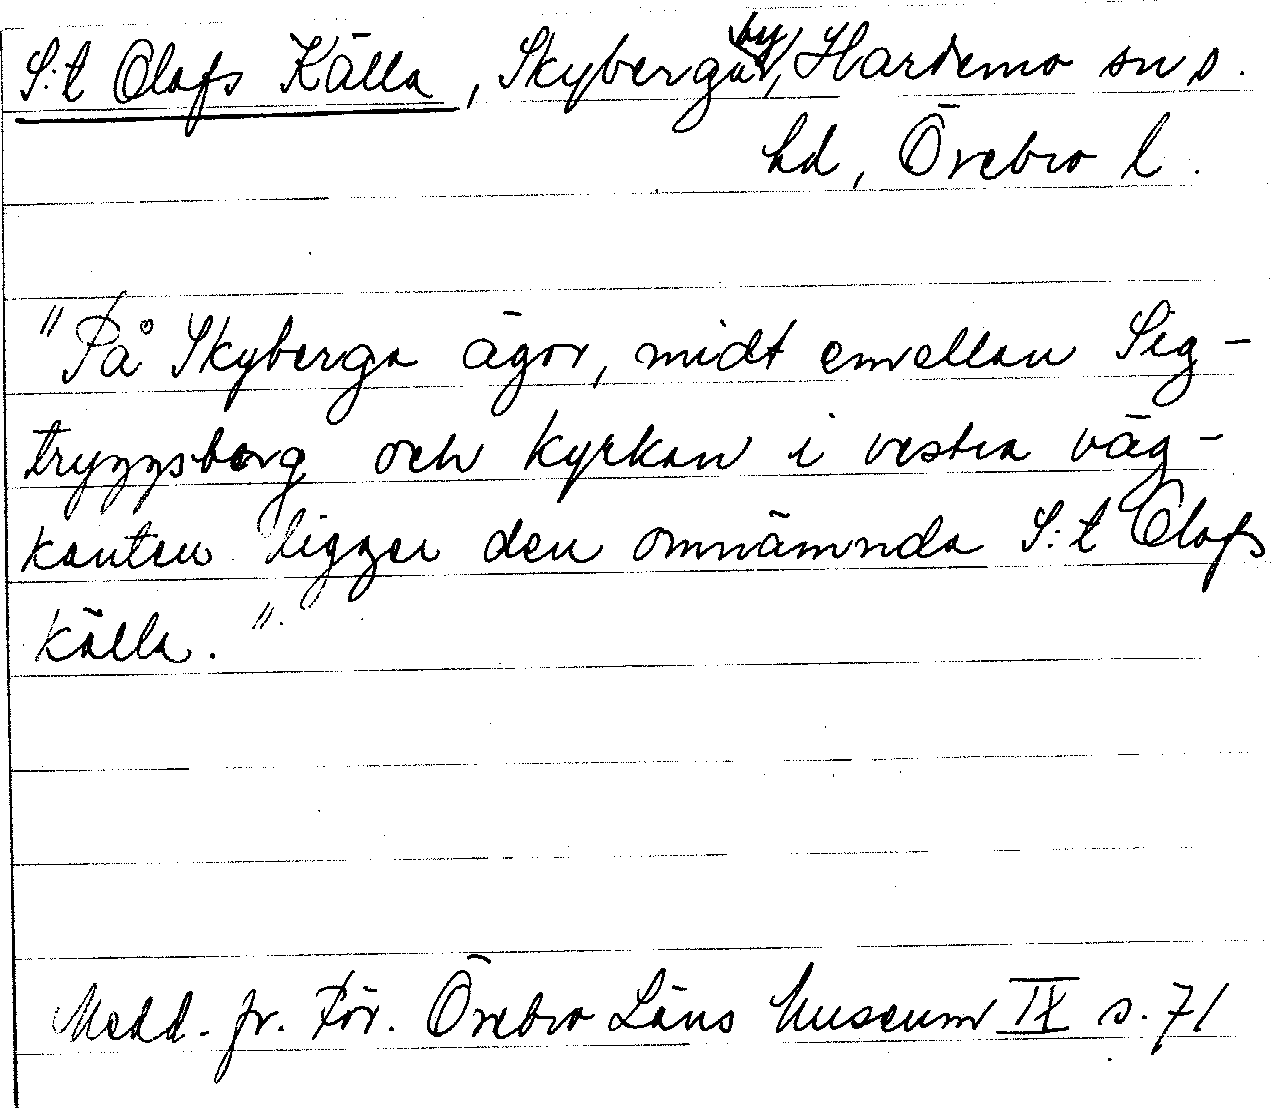 S:t Olofs Källa, Skyberga by, Hardemo sn s.
hd, Örebro l.
"På Skyberga ägor, midt emellan Sig-
tryggsborg och kyrkan i vestra väg-
kanten ligger den omnämnda S:t Olofs
källa."
Medd. fr. För. Örebro Läns Museum IX s. 71